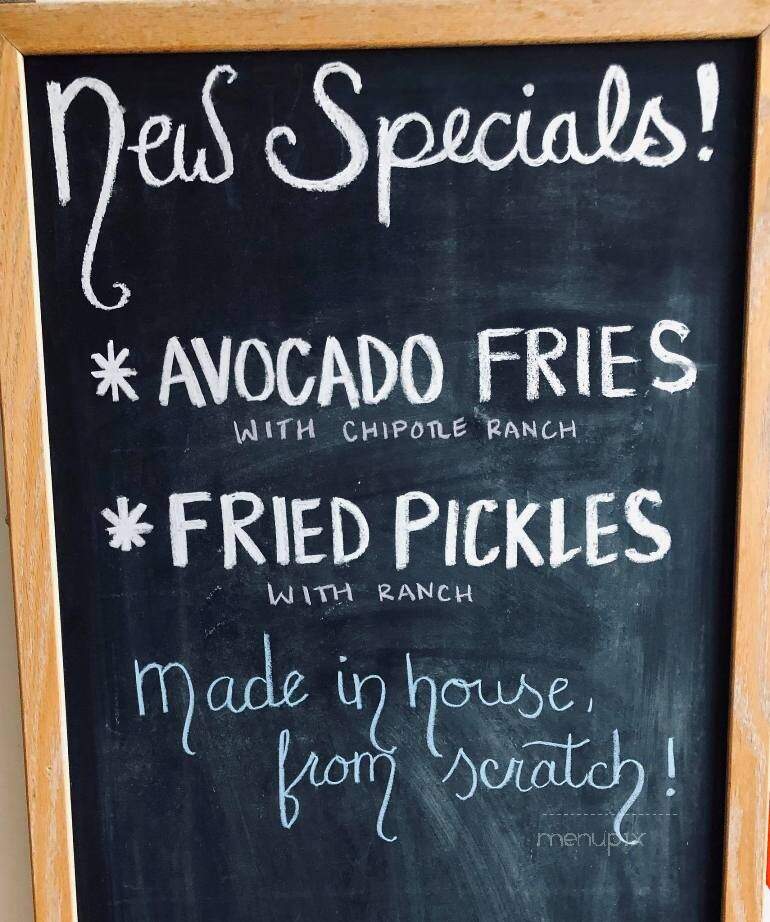 New Specials!
* AVOCADO FRIES
WITH CHIPOTLE RANCH
* FRIED PICKLES
WITH RANCH
made in house,
from scratch!
menupix